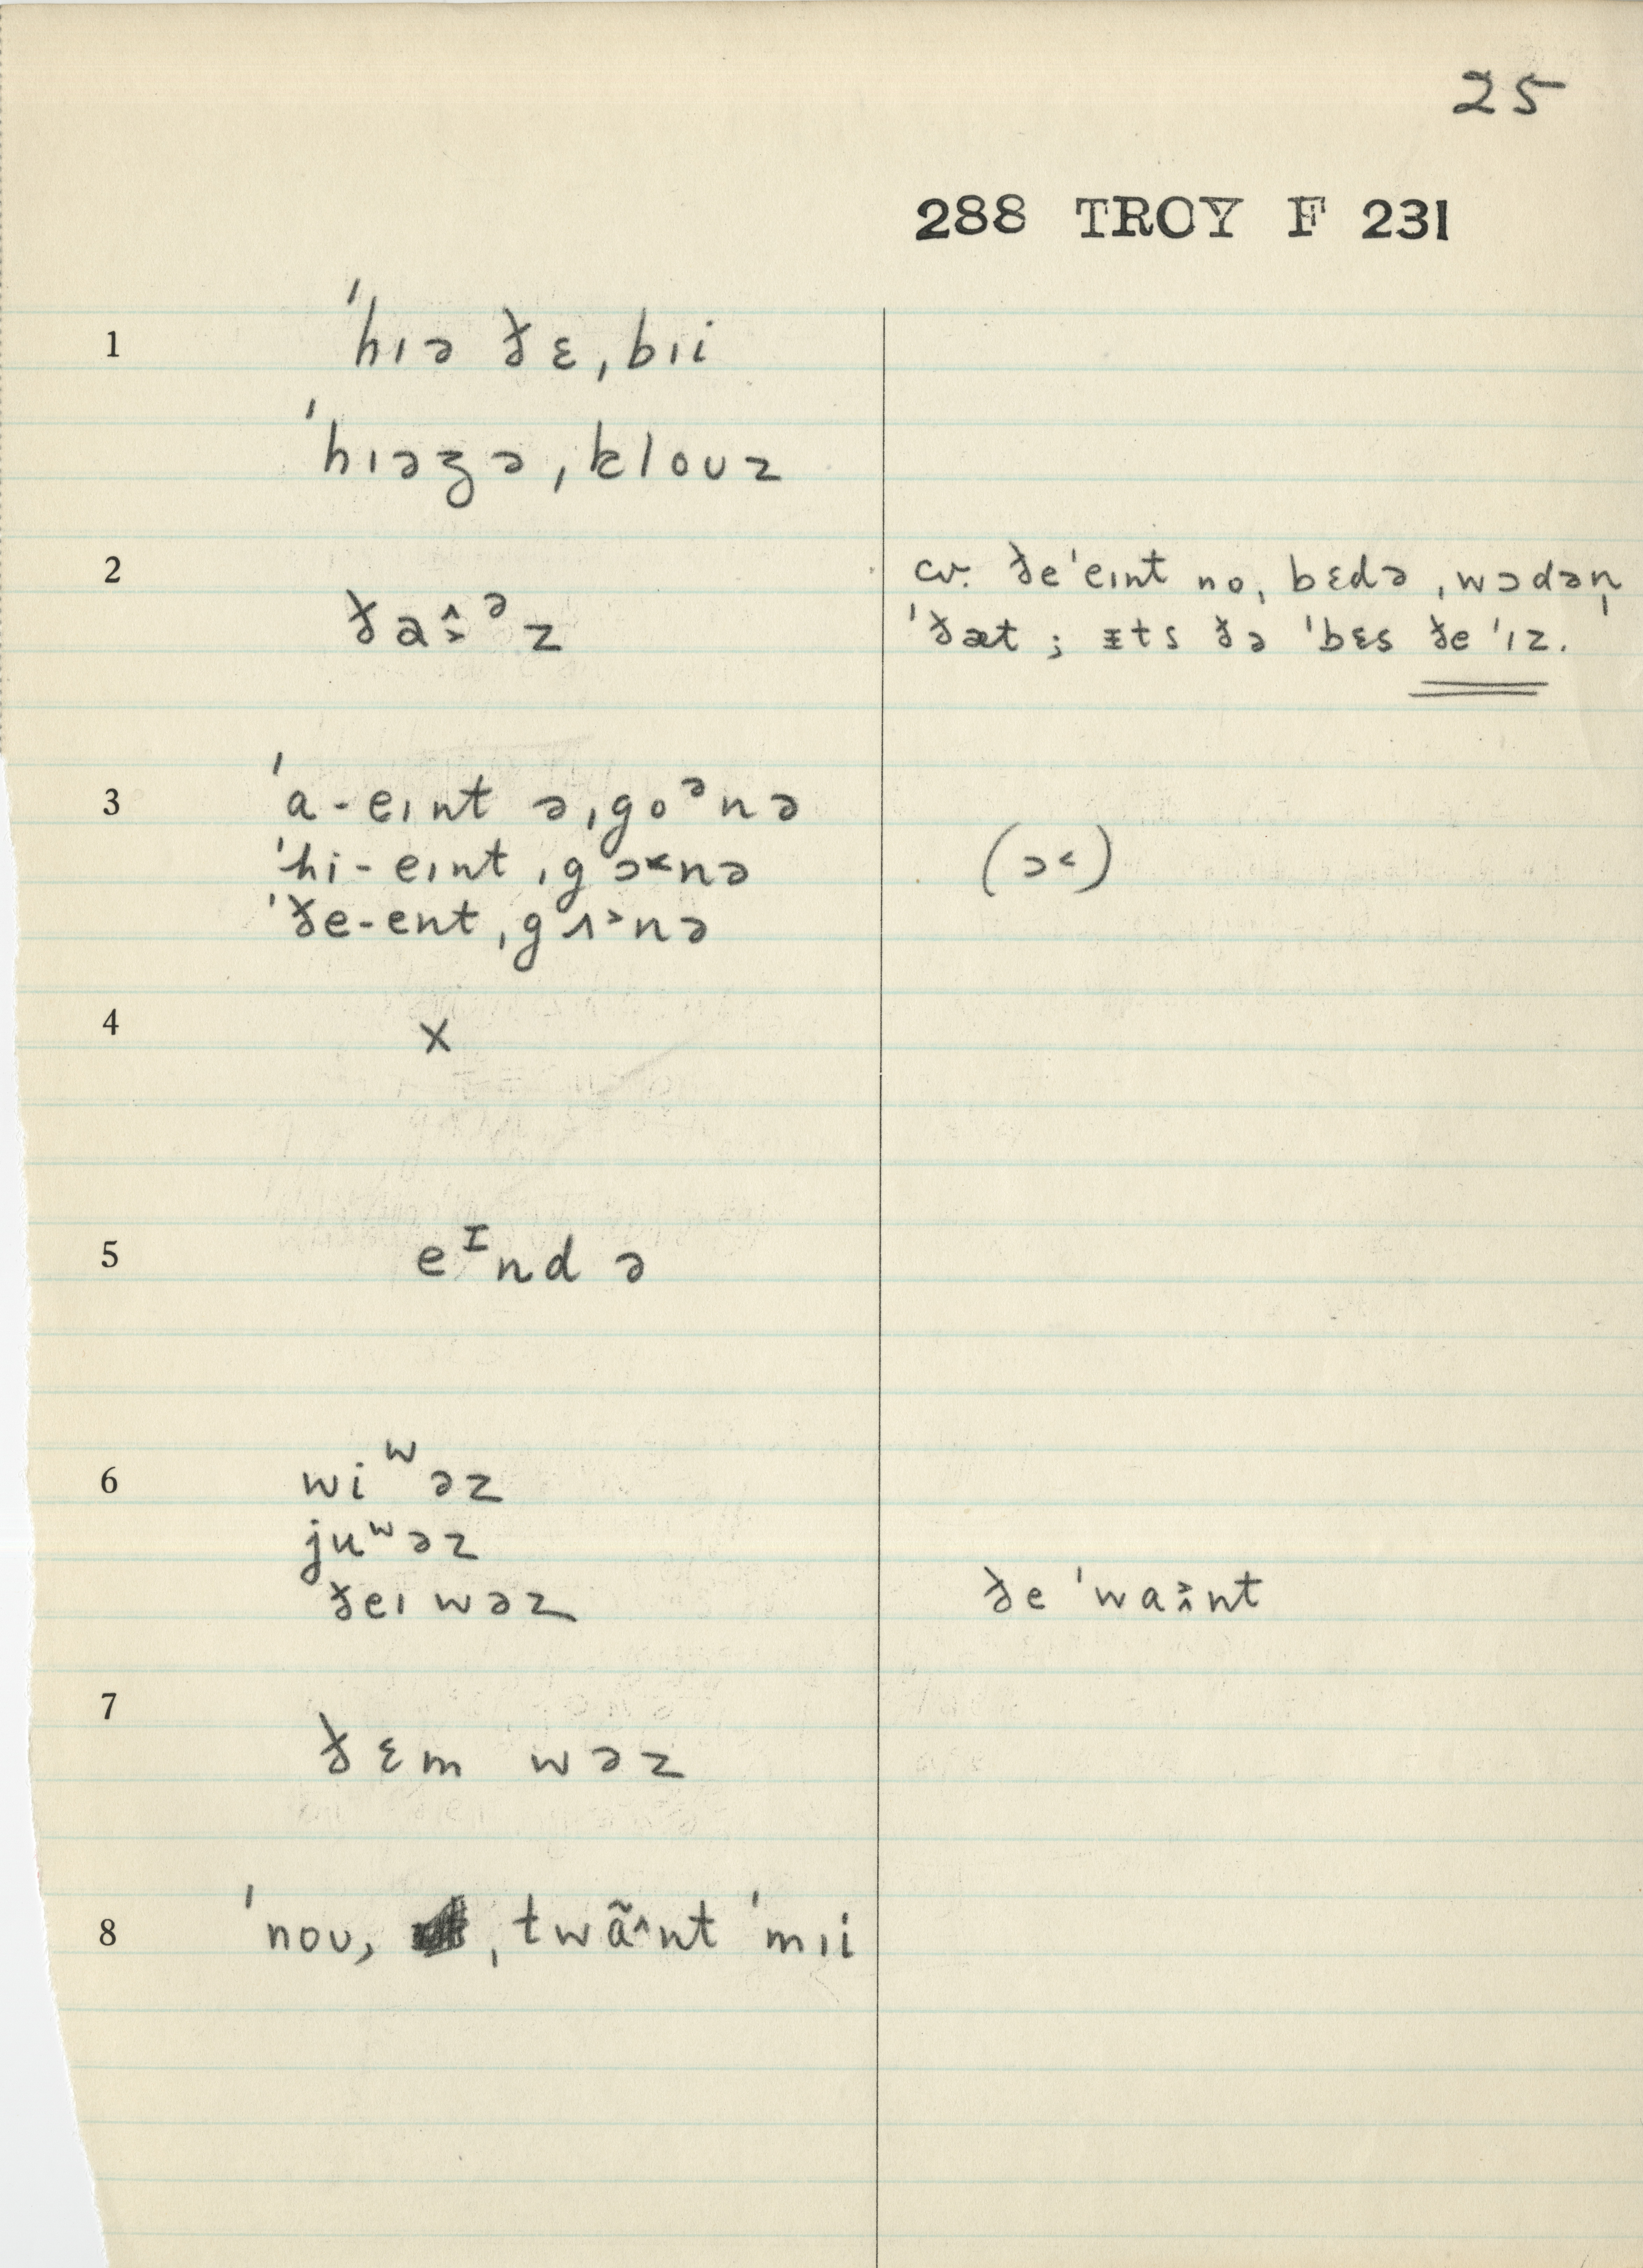 25
288 TROY F 231
1 ˈhɪə ðɛˌbɪi
ˈhɪəzəˌkloʊz
2 ðaɨ̂˒ᵊz
cv. ðeˈeɪnt noˌbɛdə ˌwɔdən̩
ˈðæt ; ɨts ðə ˈbɛs ðe ˈɪz.
3 ˈa-eɪnt əˌgoᵊnə
ˈhi-eɪnt ˌgɔ˂nə (ɔ˂)
ˈðe-ent ˌgʌ˃nə
4 x
5 eᶦnd ə
6 wiʷəz
juʷəz
ðeɪ wəz ðe ˈwaːnt
7 ðɛm wəz
8 ˈnoʊ, ˌtwã˄nt ˈmɪi